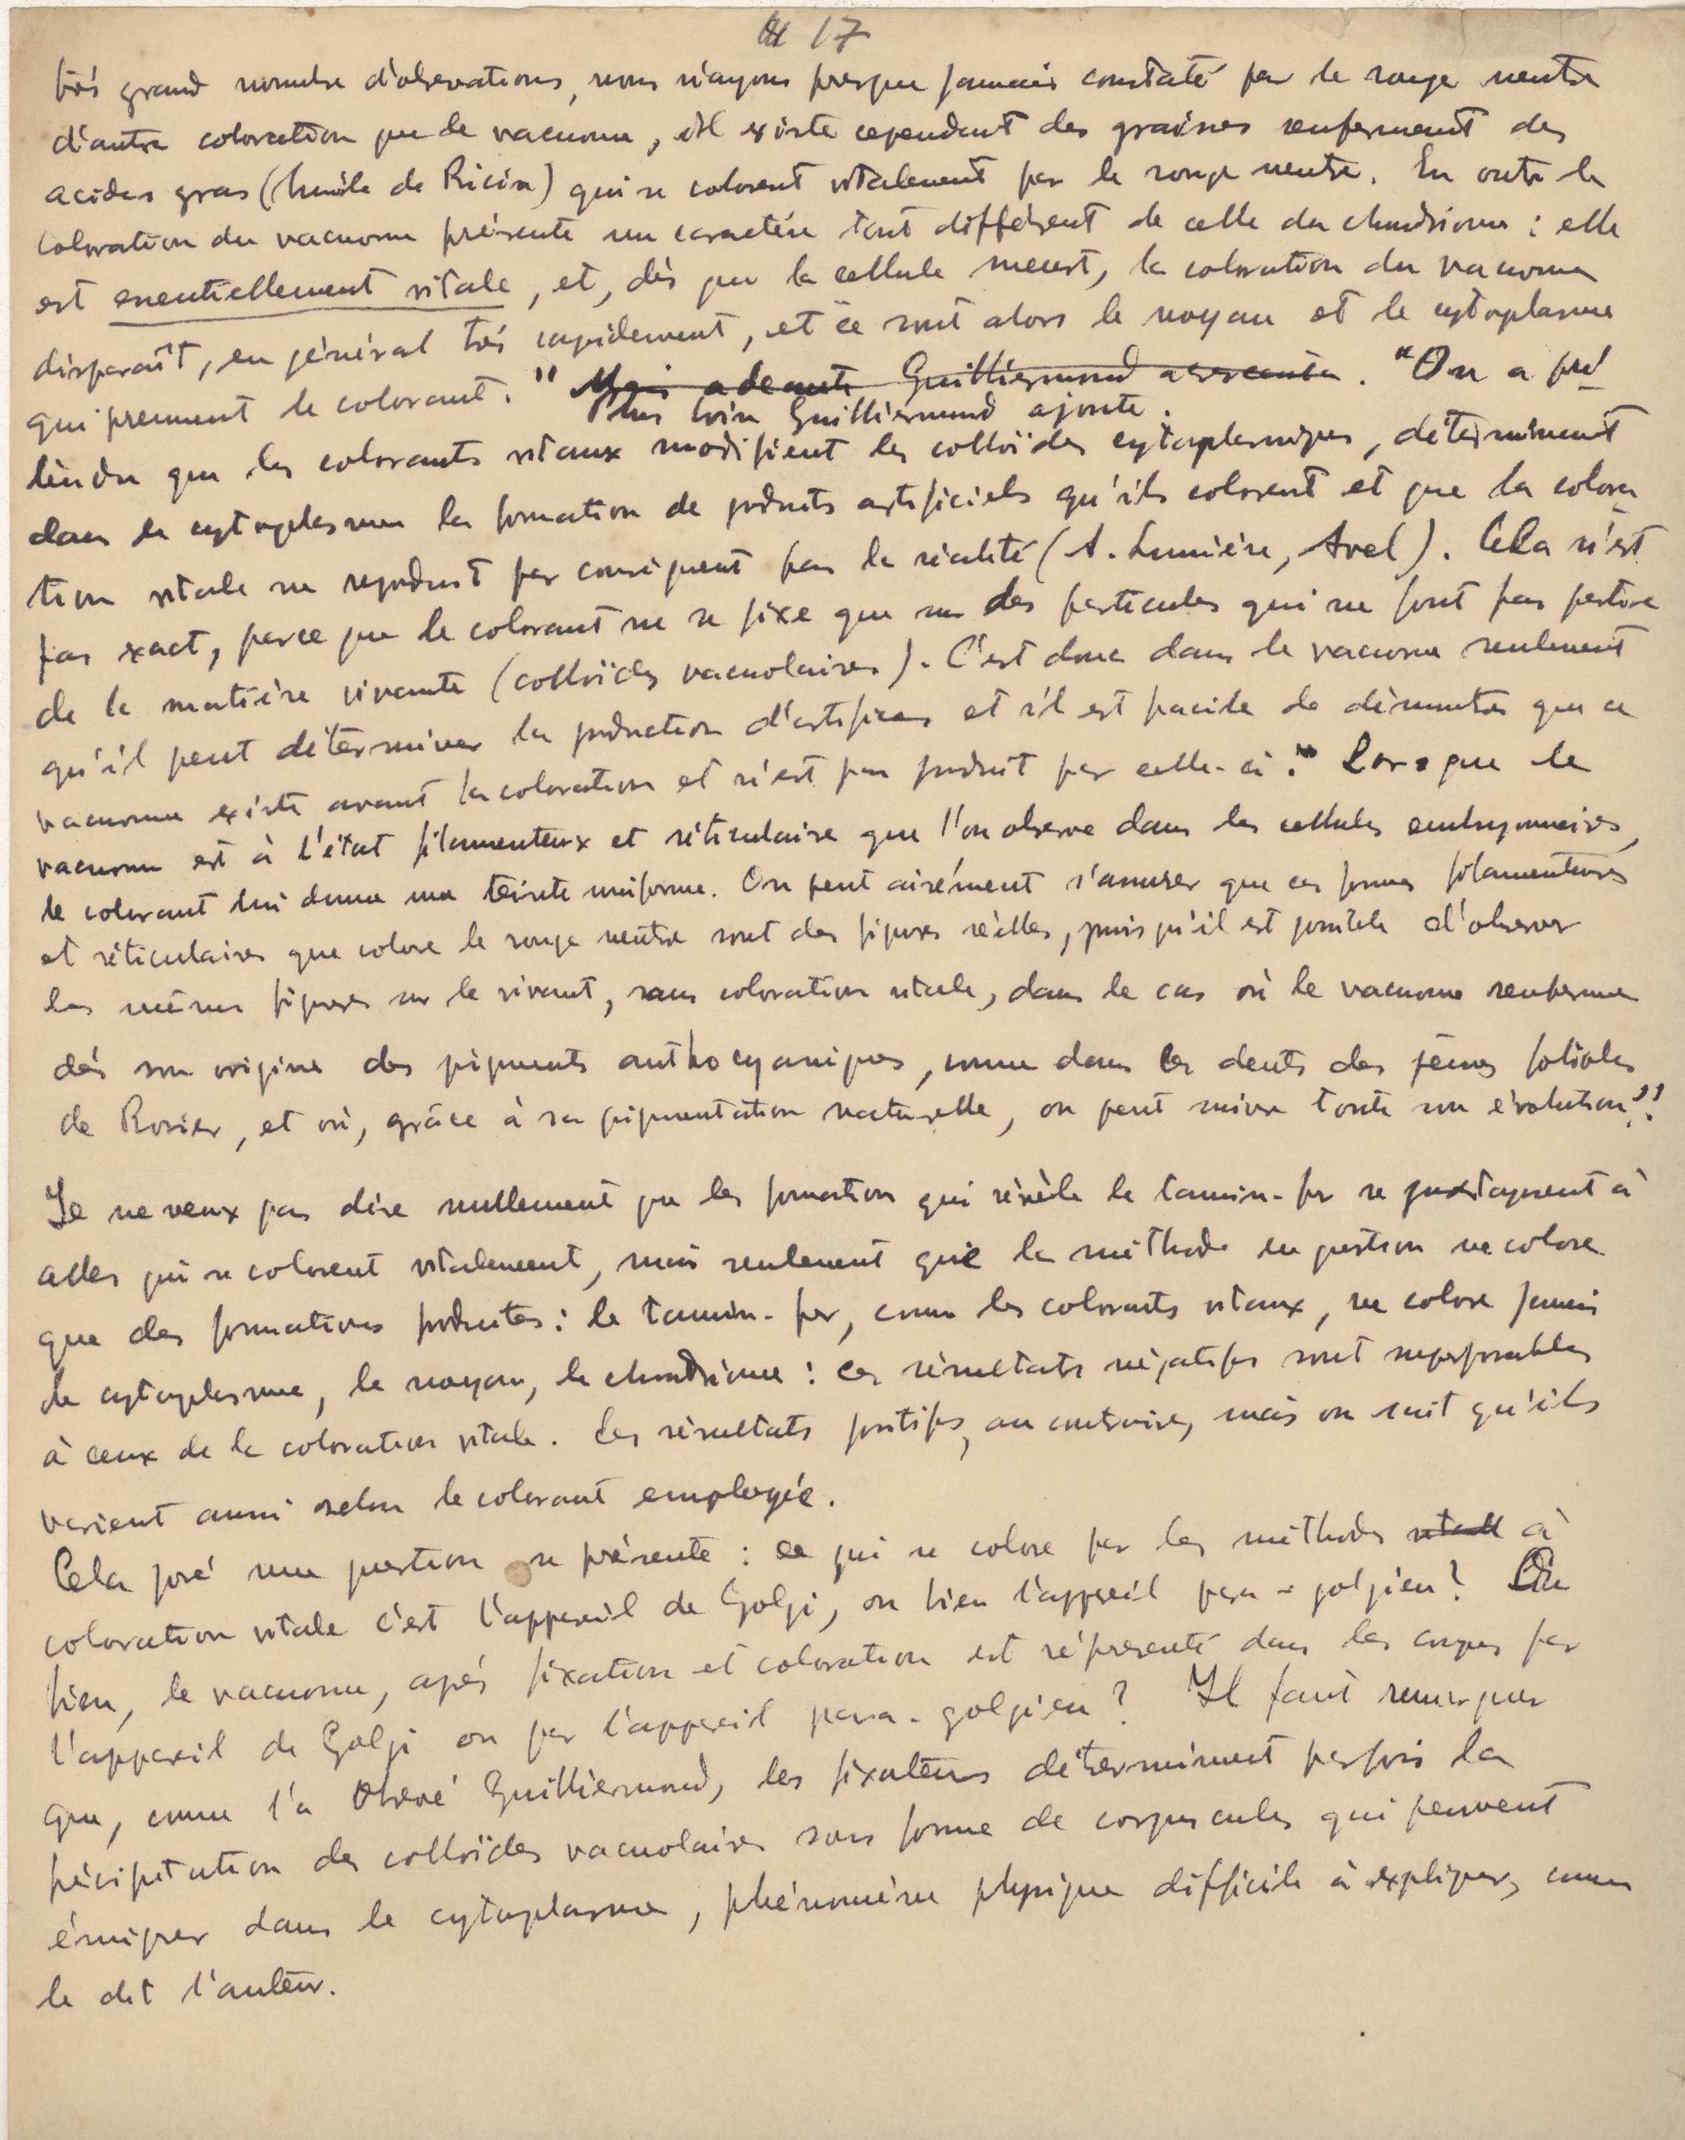 17
très grand nombre d'observations, nous n'ayons presque jamais constaté par le rouge neutre
d'autre coloration que le vacuome, il existe cependant des graines renfermant des
acides gras (huile de Ricin) qui se colorent vitalement par le rouge neutre. En outre la
coloration du vacuome présente un caractère tout différent de celle du chondriome : elle
est essentiellement vitale, et, dès que la cellule meurt, la coloration du vacuome
disparaît, en général très rapidement, et ce sont alors le noyau et le cytoplasme
qui prennent le colorant." Guilliermond . "On a pré-
Plus loin Guilliermond ajoute.
tendu que les colorants vitaux modifient les colloïdes cytoplasmiques, déterminent
dans le cytoplasme la formation de produits artificiels qu'ils colorent et que la colora-
tion vitale ne reproduit par conséquent pas la réalité (A. Lumière, Avel). Cela n'est
pas exact, parce que le colorant ne se fixe que sur des particules qui ne font pas partie
de la matière vivante (colloïdes vacuolaires). C'est donc dans le vacuome seulement
qu'il peut déterminer la production d'artifices et il est facile de démontrer que ce
vacuome existe avant la coloration et n'est pas produit par celle-ci." Lorsque le
vacuome est à l'état filamenteux et réticulaire que l'on observe dans les cellules embryonnaires,
le colorant lui donne une teinte uniforme. On peut aisément s'assurer que ces formes filamenteuses
et réticulaires que colore le rouge neutre sont des figures réelles, puisqu'il est possible d'observer
les mêmes figures sur le vivant, sans coloration vitale, dans le cas où le vacuome renferme
dès son origine des pigments anthocyaniques, comme dans les dents des jeunes folioles
de Rosier, et où, grâce à sa pigmentation naturelle, on peut suivre toute son évolution".
Je ne veux pas dire nullement que les formation qui révèle le tannin-fer se juxtaposent à
celles qui se colorent vitalement, mais seulement que la méthode en question ne colore
que des formations produites : le tannin-fer, comme les colorants vitaux, ne colore jamais
le cytoplasme, le noyau, le chondriome : ces résultats négatifs sont superposables
à ceux de la coloration vitale. Les résultats positifs, au contraire, mais on sait qu'ils
varient aussi selon le colorant employée.
Cela posé une question se présente : ce qui se colore par les méthodes à
coloration vitale c'est l'appareil de Golgi, ou bien l'appareil para-golgien ? Ou
bien, le vacuome, après fixation et coloration est réprésenté dans les coupes par
l'appareil de Golgi ou par l'appareil para-golgien ? Il faut remarquer
que, comme l'a observé Guilliermond, les fixateurs déterminent parfois la
précipitation des colloïdes vacuolaires sous forme de corpuscules qui peuvent
émigrer dans le cytoplasme, phénomène physique difficile à expliquer, comme
le dit l'auteur.